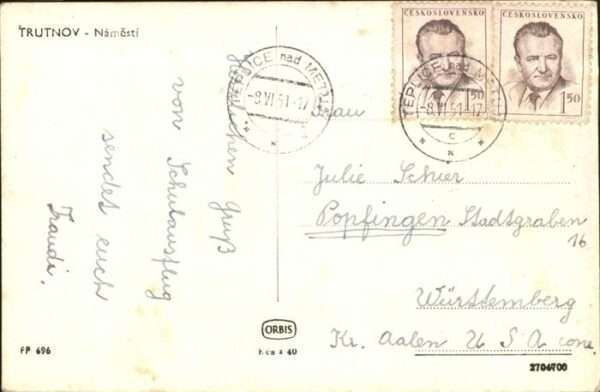 TRUTNOV - Náměstí
Herzlichen Gruß
von Schulausflug
sendet euch
Traudi.
ČESKOSLOVENSKO
1.50
ČESKOSLOVENSKO
1.50
TEPLICE nad METUJÍ
-8.VI.51-17
TEPLICE nad METUJÍ
-8.VI.51-17
c
Frau
Julie Schier
Popfingen Stadtgraben
16
Württemberg
Kr. Aalen U S A
ORBIS
FP 696
2704700